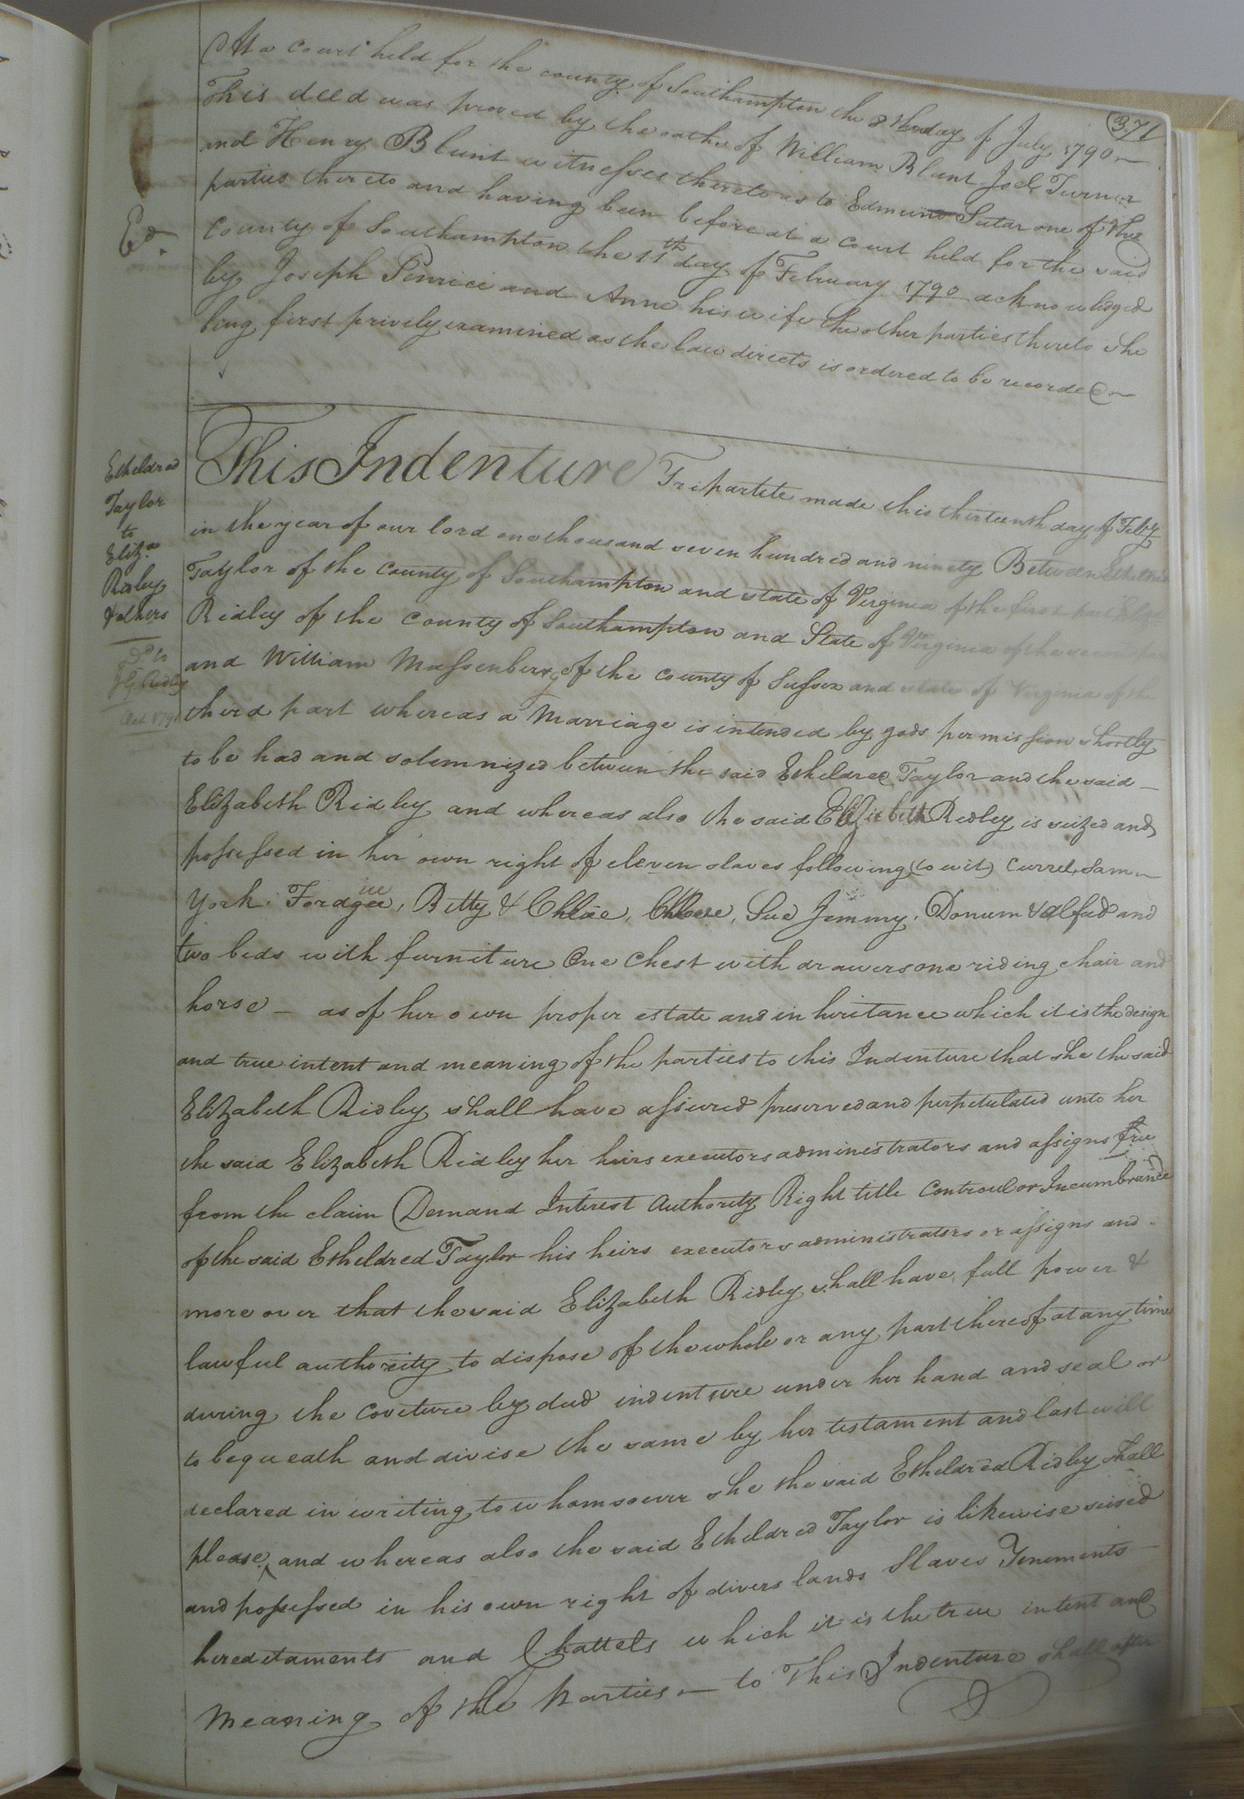 371
At a court held for the county of Southampton the 8th day of July 1790 —
This deed was proved by the oaths of William Blunt Joel Turner
and Henry Blunt witnesses thereto as to Edmund one of the
parties thereto and having been before at a court held for the said
Ed.
County of Southampton the 11th day of February 1790 acknowledged
by Joseph and Anne his wife the other parties thereto she
being first privily examined as the law directs is ordered to be recorded —
Etheldred
Taylor
to
Eliza
Ridley
& others
This Indenture Tripartite made this thirteenth day of Feby
in the year of our lord one thousand seven hundred and ninety Between Etheldred
Taylor of the County of Southampton and state of Virginia of the first part Eliza
Ridley of the County of Southampton and State of Virginia of the second part
and William Massenberg of the County of Sussex and state of Virginia of the
third part whereas a Marriage is intended by gods permission shortly
to be had and solemnized between the said Etheldred Taylor and the said —
Elizabeth Ridley and whereas also the said Elizabeth Ridley is seized and
possessed in her own right of eleven slaves following (to wit) Currel, Sam —
York, Betty & Chloe, Sue Jemmy, Donum & alfud and
two beds with furniture One Chest with drawers one riding chair and
horse — as of her own proper estate and inheritance which it is the design
and true intent and meaning of the parties to this Indenture that she the said
Elizabeth Ridley shall have assured preserved and perpetulated unto her
the said Elizabeth Ridley her heirs executors administrators and assigns free
from the claim Demand Interest Authority Right title Controul or Incumbrance
of the said Etheldred Taylor his heirs executors administrators or assigns and —
more over that the said Elizabeth Ridley shall have full power &
lawful authority to dispose of the whole or any part thereof at any time
during the coveture by deed indenture under her hand and seal or
to bequeath and divise the same by her testament and last will
declared in writing to whomsoever she the said Etheldred Ridley shall
please, and whereas also the said Etheldred Taylor is likewise seised
and possessed in his own right of divers lands Slaves Tenements —
hereditaments and Chattels which it is the true intent and
Meaning of the Parties — to This Indenture shall after